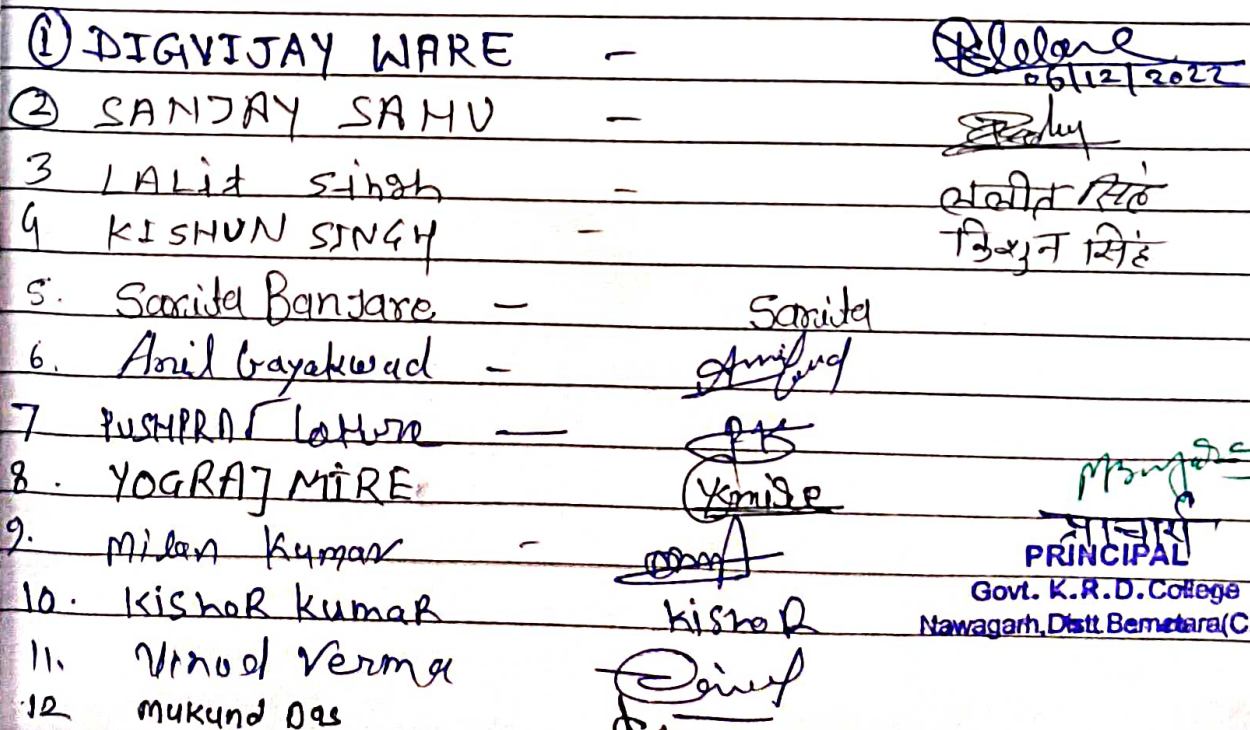 ① DIGVIJAY WARE -
06/12/2022
② SANJAY SAHU -
3 LALit Singh - ललीत सिंह
4 KISHUN SINGH - किशुन सिंह
5. Sarita Banjare - Sarita
6. Anil Gayakwad -
7 PUSHPRAJ -
8. YOGRAJ MiRE Ymire
9. Milan Kumar -
10. KishoR kumaR KishoR
11. Vinod Verma
12 Mukund Das
प्राचार्य
PRINCIPAL
Govt. K.R.D. College
Nawagarh, Distt. Bemetara(C